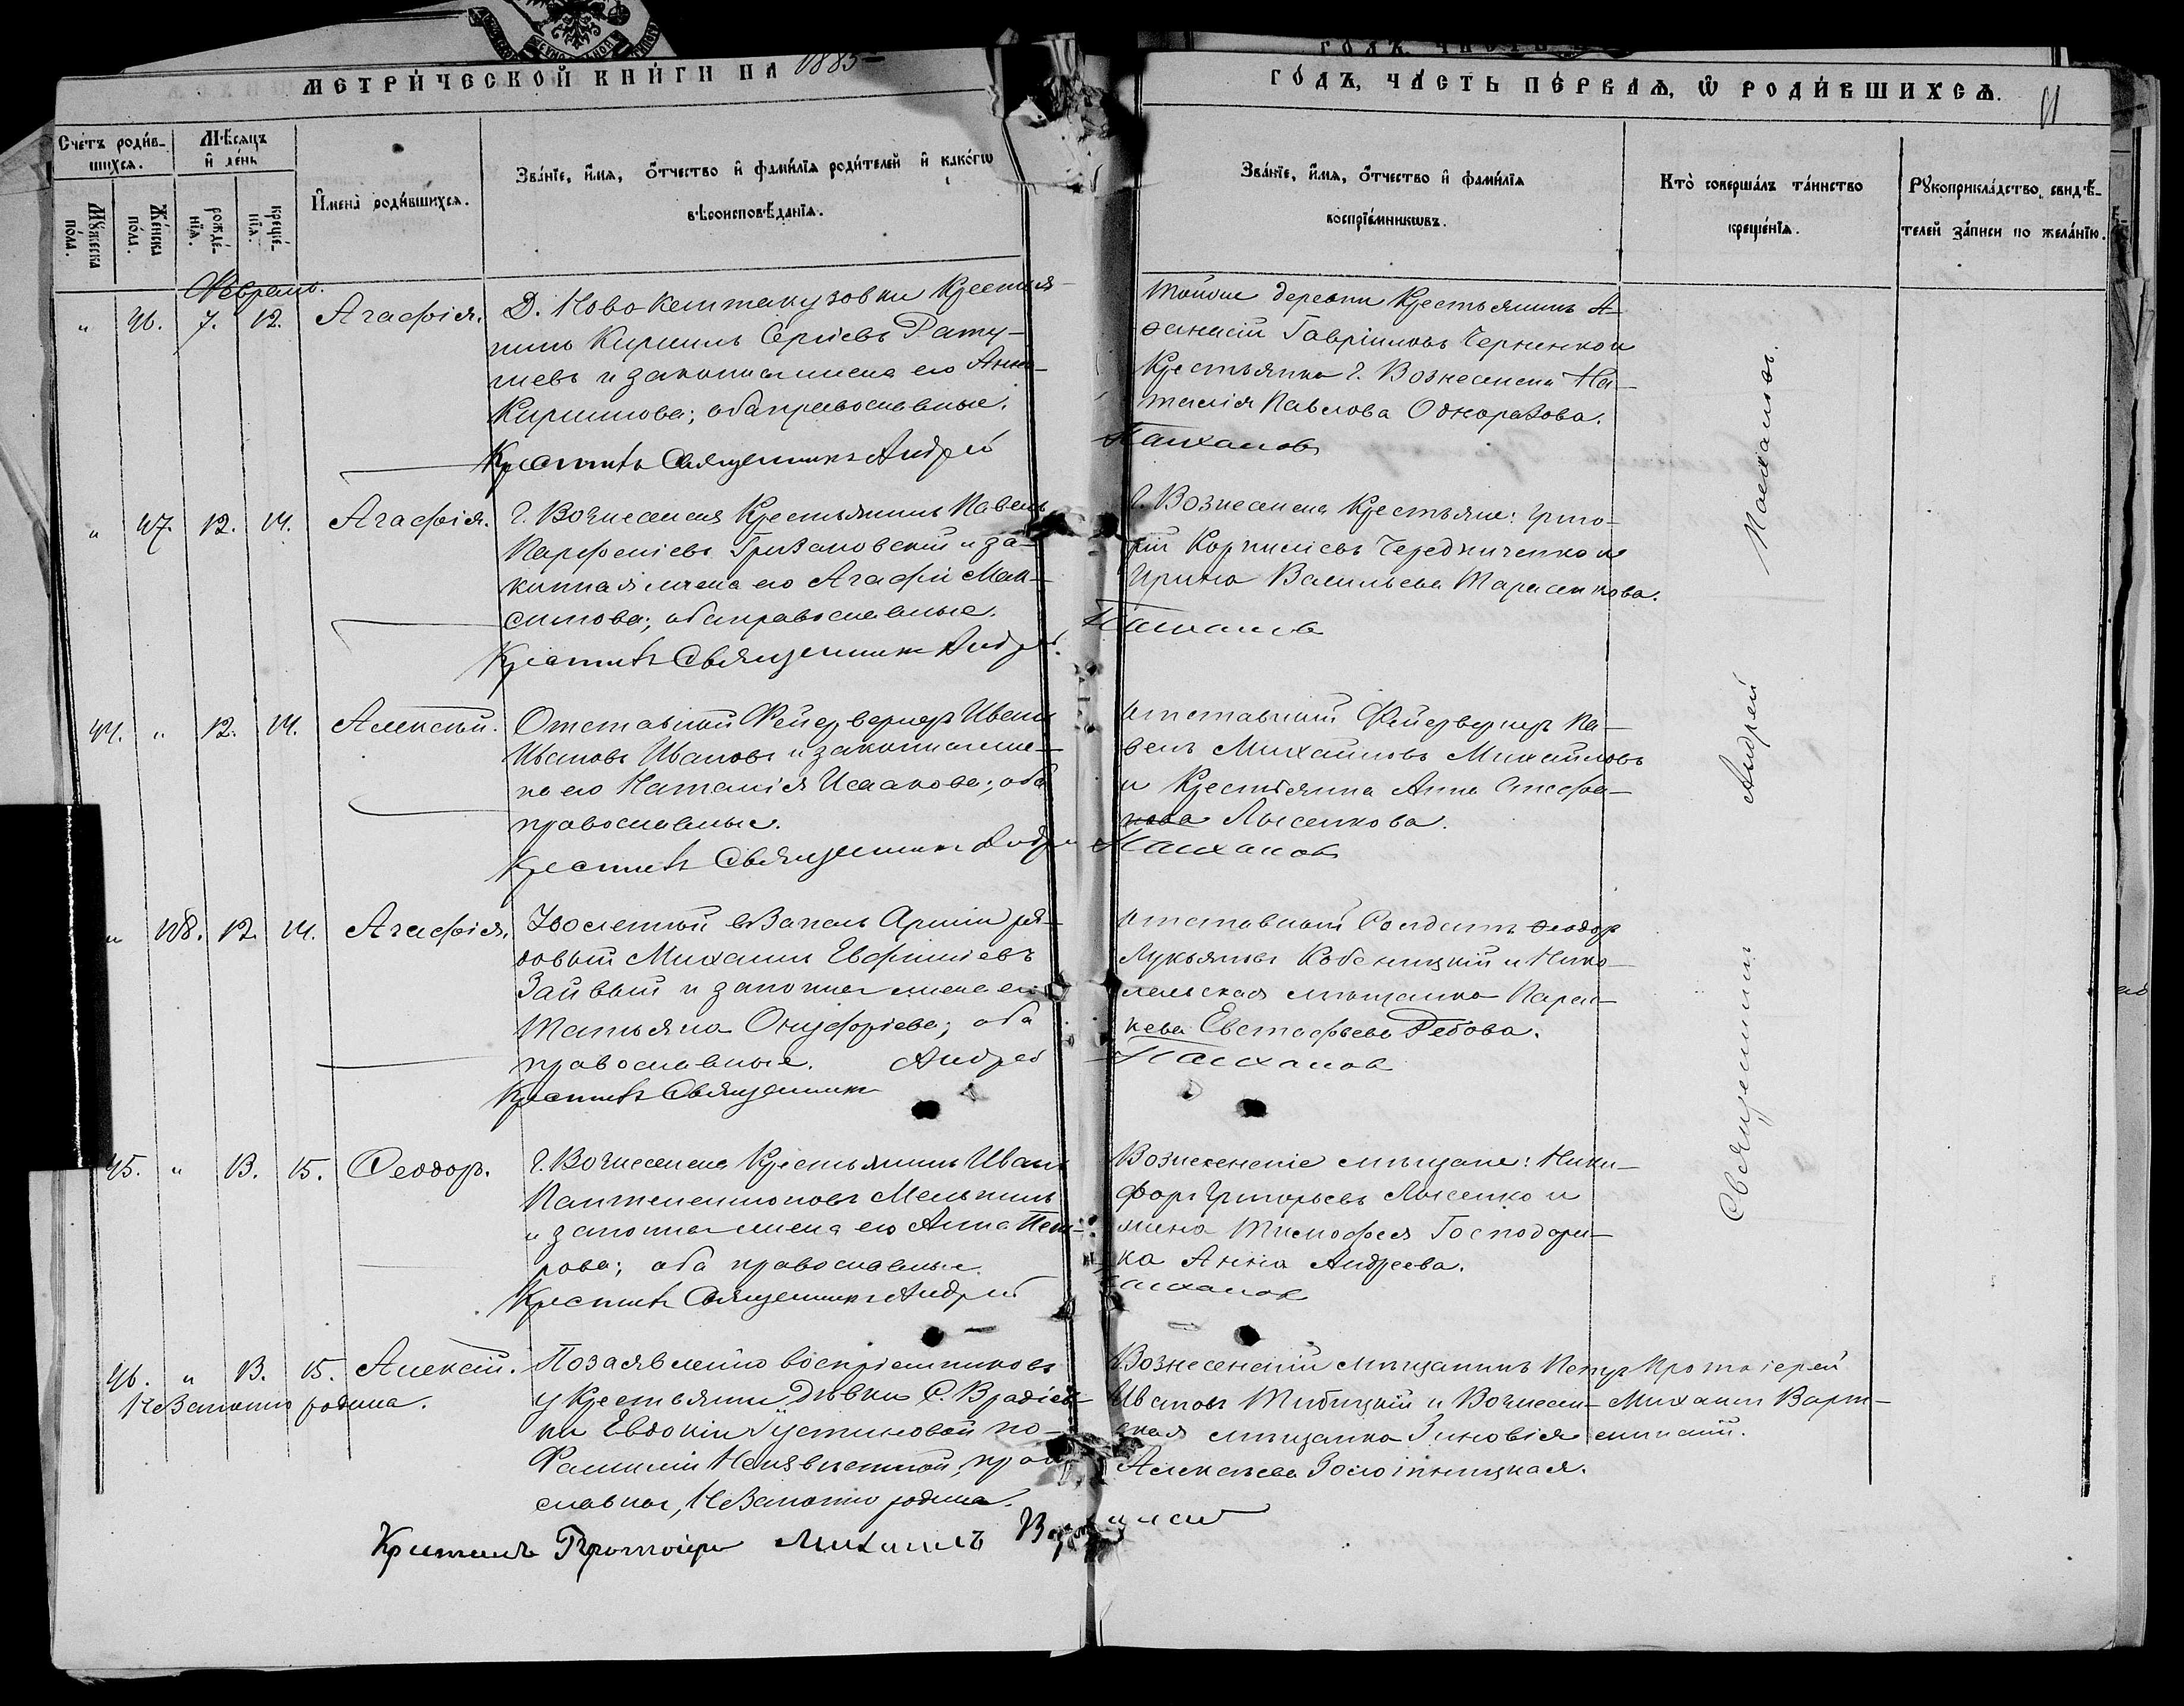 МЕТРИЧЕСКОЙ КНИГИ НА 1885
ГОДЪ, ЧАСТЬ ПЕРВАЯ, Ѡ РОДИВШИХСЯ.
11
Счетъ родив-
шихся.
Мѣсяцъ
и день
Мужеска
пола.
Женска
пола.
рожде-
нія.
креще-
нія.
Имена родившихся.
Званіе, имя, отчество и фамилія родителей и какогѡ
вѣроисповѣданія.
Званіе, имя, отчество и фамилія
воспріемникѡвъ.
Кто совершалъ таинство
крещенія.
Рукоприкладство свидѣ-
телей записи по желанію.
Февраль.
" 46. 7. 12. Агафія.
Д. Ново Кантакузовки Крестья-
нинъ Кириллъ Сергіевъ Рату-
шневъ и законная жена его Анна
Кириллова; оба православные.
Крестилъ Священникъ Андрей
Тойже деревни Крестьянинъ А-
ѳанасій Гавріиловъ Черненко и
Крестьянка г. Вознесенска На-
талія Павлова Одноразова.
Паиханов
" 47. 12. 14. Агафія.
г. Вознесенска Крестьянинъ Павелъ
Парфеніевъ Гризановскій и за-
конная жена его Агафія Мак-
симова; оба православные.
Крестилъ Священникъ Андрей
г. Вознесенска Крестьяне: Григо-
рій Корниліевъ Чередниченко и
Ирина Васильева Тарасенкова.
44. " 12. 14. Алексѣй.
Отставный Фейерверкеръ Иванъ
Ивановъ Ивановъ и законная же-
на его Наталія Исаакова; оба
православные.
Крестилъ Священникъ Андрей
Отставный Фейерверкеръ Па-
велъ Михайловъ Михайловъ
и Крестьянка Анна Стефа-
нова Лысенкова.
Паиханов
" 48. 12. 14. Агафія.
Уволенный въ Запасъ Арміи ря-
довый Михаилъ Евфиміевъ
и законная жена его
Татьяна Онуфріева; оба
православные. Андрей
Крестилъ Священникъ
Отставный Солдатъ Ѳеодоръ
Лукьяновъ и Нико-
лаевская мѣщанка Парас-
кева Евстафьева
Паиханов
45. " 13. 15. Ѳеодоръ.
г. Вознесенска Крестьянинъ Иванъ
Пантелеимоновъ Мельникъ
и законная жена его Анна Пет-
рова; оба православные.
Крестилъ Священникъ Андрей
Вознесенскіе мѣщане: Ники-
форъ Григорьевъ Лысенко и
жена Тимофея Господари-
ка Анна Андреева.
46. " 13. 15. Алексій.
Незаконно родила.
По заявленію воспріемниковъ
у Крестьянки Дѣвки С. Врадіев-
ки Евдокіи Іустиновой по
Фамиліи Неизвѣстной, право-
славной, Незаконно родила.
Крестилъ Протоіерей Михаилъ
Вознесенскій мѣщанинъ Петръ
Ивановъ и Вознесен-
ская мѣщанка Зиновія
Алексѣева
Протоіерей
Михаилъ
Священникъ Андрей